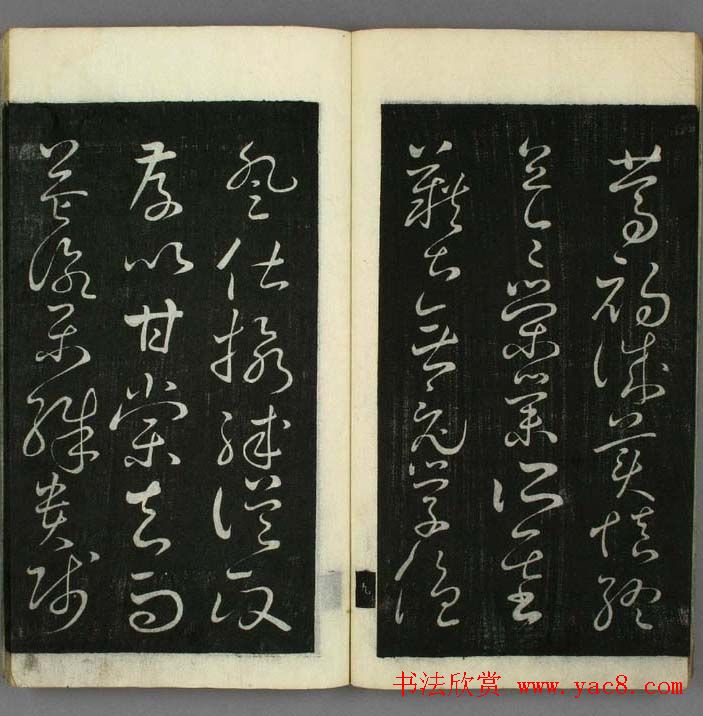 篤初誠美慎終
宜令榮業所基
籍甚無竟學優
九
登仕攝職從政
存以甘棠去而
益詠樂殊貴賤
书法欣赏 www.yac8.com